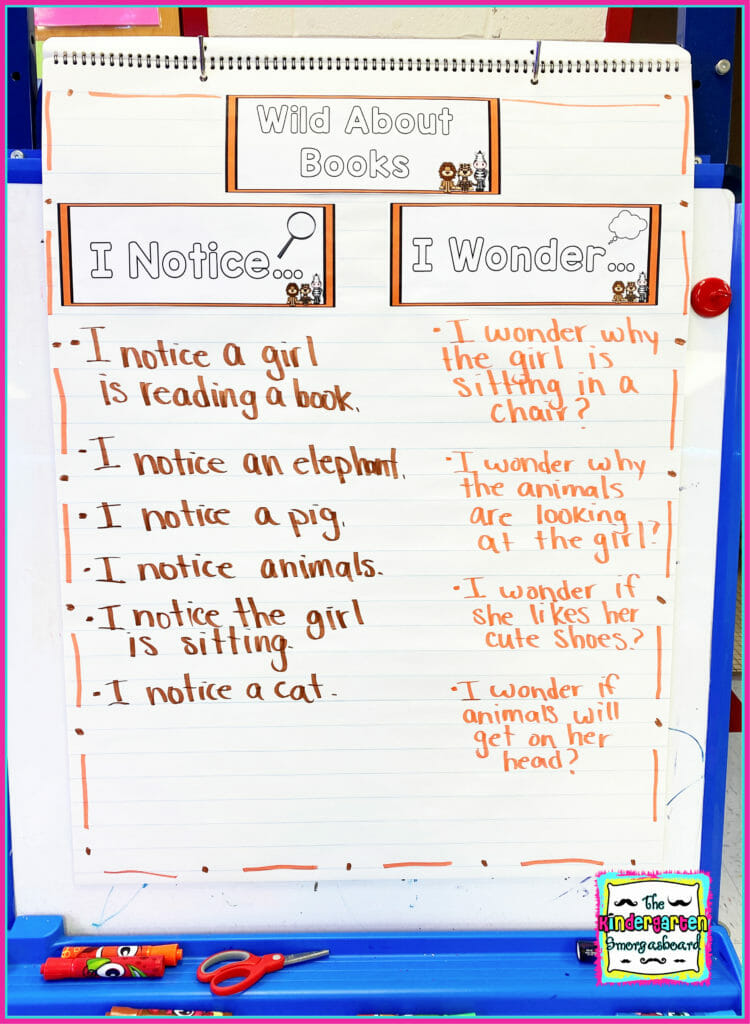 Wild About
Books
I Notice...
I Wonder...
• I notice a girl
is reading a book.
• I notice an elephant.
• I notice a pig.
• I notice animals.
• I notice the girl
is sitting.
• I notice a cat.
• I wonder why
the girl is
sitting in a
chair?
• I wonder why
the animals
are looking
at the girl?
• I wonder if
she likes her
cute shoes?
• I wonder if
animals will
get on her
head?
The
Kindergarten
Smorgasboard